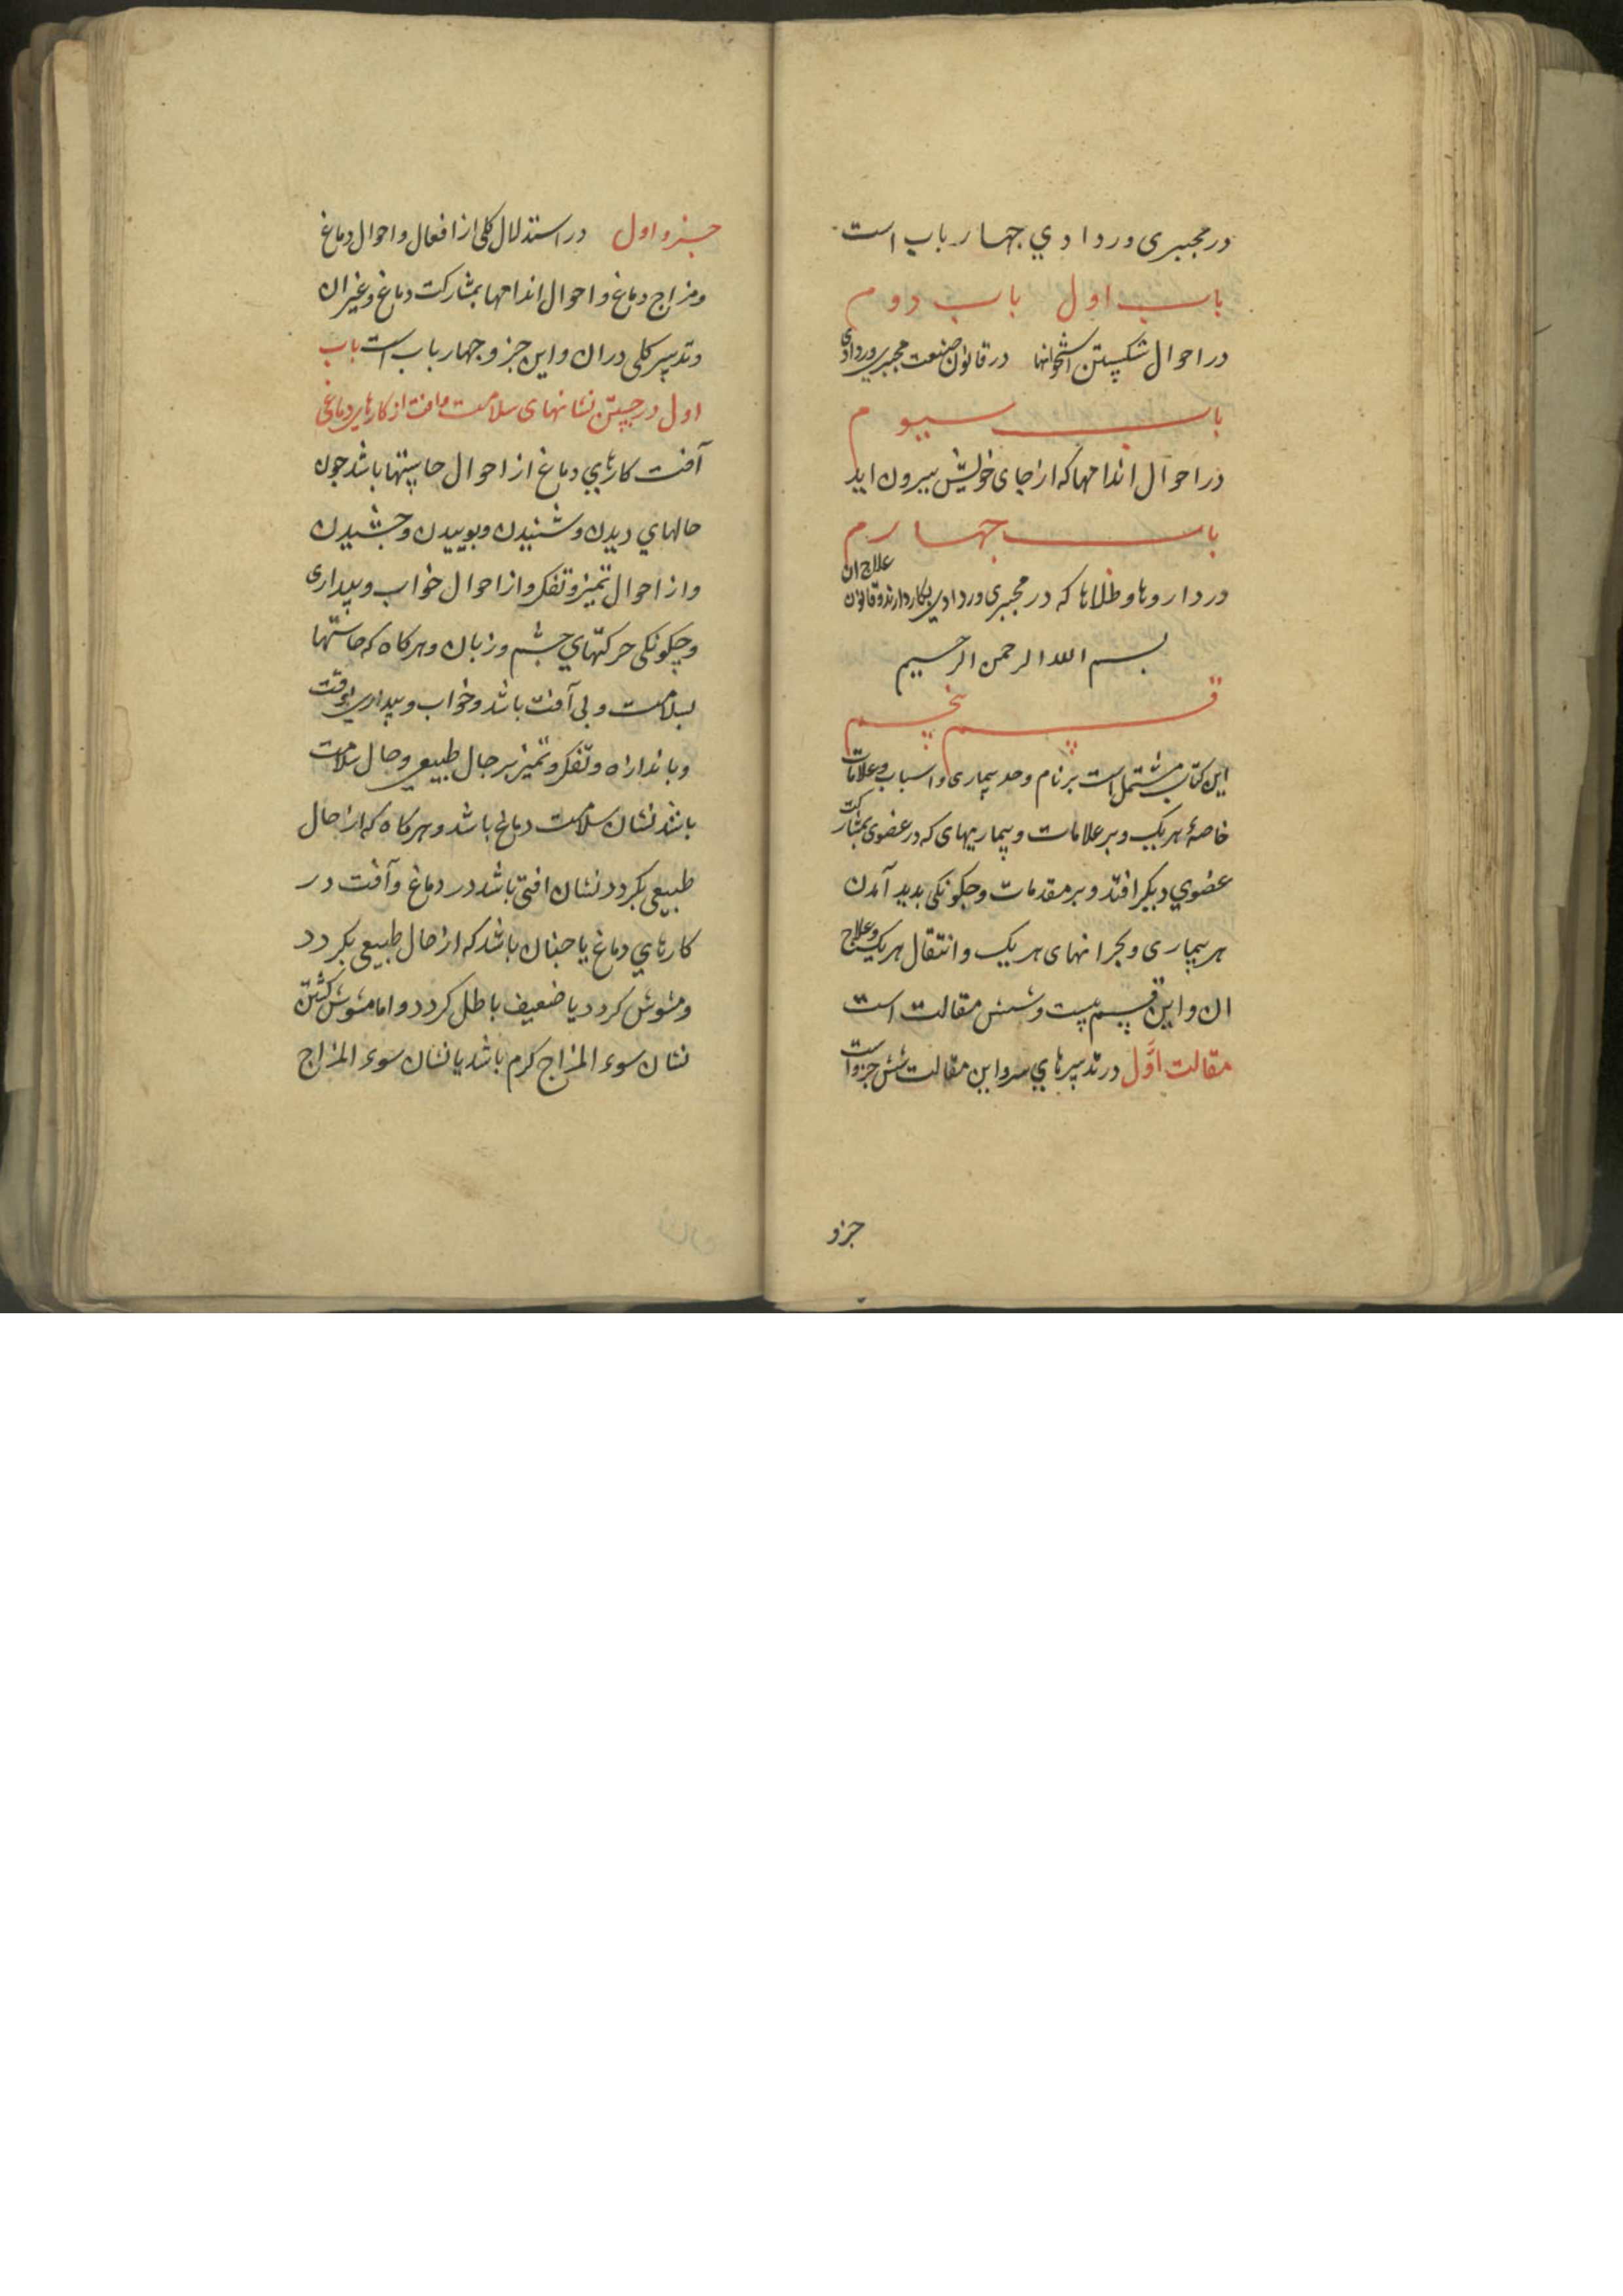 در مجبری وردادي جهار باب است
باب اول باب دوم
در احوال شکستن استخوانها در قانون صنعت مجبري وردادی
باب سیوم
در احوال اندامها که از جای خویش بیرون اید
باب جهارم
در داروها وطلاها که در مجبری وردادي بکار دارند وقانون علاج ان
بسم الله الرحمن الرحیم
قسم پنجم
این کتاب مشتمل است بر نام وحد بیماری و اسباب وعلامات
خاصهٔ هر یک وبر علامات وبیماریهای که در عضوی بمشارکت
عضوي دیکر افتد وبر مقدمات وجکونکی بدید آمدن
هر بیماری وبحرانهای هر یک وانتقال هر یک وعلاج
ان واین قسم بیست وشش مقالت است
مقالت اوّل در تدبیرهاي سر واین مقالت شش جزو است
جزو
جزو اول در استدلال کلی از افعال واحوال دماغ
ومزاج دماغ واحوال اندامها بمشارکت دماغ وغیر ان
وتدبیر کلی در ان واین جزو جهار باب است باب
اول در جستن نشانهای سلامت وافت از کارهاي دماغی
آفت کارهاي دماغ از احوال حاستها باشد جون
حالهاي دیدن وشنیدن وبوییدن وجشیدن
واز احوال تمیز وتفکر واز احوال خواب وبیداری
وچکونکی حرکتهاي جشم وزبان وهرکاه که حاستها
بسلامت وبی آفت باشد وخواب وبیداري بوقت
وباندازه وتفکر وتمیز بر حال طبیعي وحال سلامت
باشد نشان سلامت دماغ باشد وهرکاه که از حال
طبیعی بکردد نشان افتی باشد در دماغ وآفت در
کارهاي دماغ یا جنان باشد که از حال طبیعی بکردد
ومشوش کردد یا ضعیف یا باطل کردد واما مشوش کشتن
نشان سوء المزاج کرم باشد یا نشان سوء المزاج